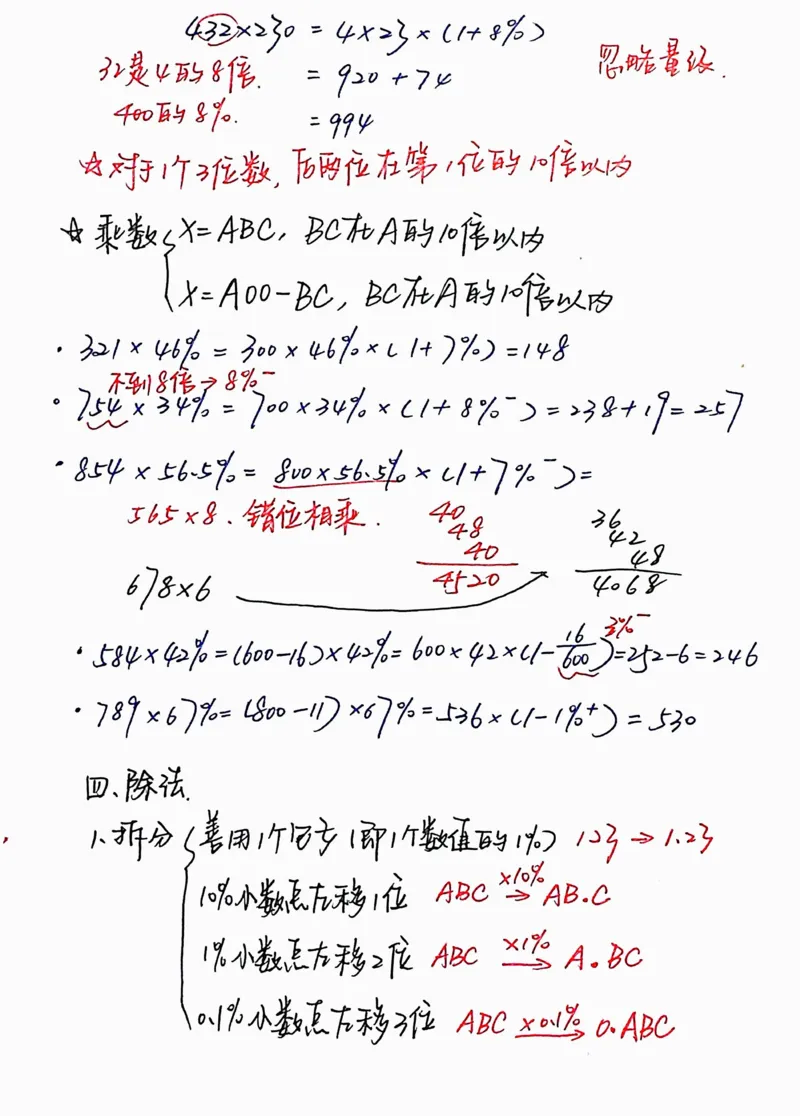 432×230 = 4×23×(1+8%)
32是4的8倍. = 920+74 忽略量级.
400的8%. =994
☆对于1个3位数,后两位在第1位的10倍以内
☆乘数{X=ABC, BC在A的10倍以内
X=A00-BC, BC在A的10倍以内
·321×46%=300×46%×(1+7%)=148
不到8倍→8%⁻
·754×34%=700×34%×(1+8%⁻)=238+19=257
·854×56.5%=800×56.5%×(1+7%⁻)=
565×8.错位相乘. 40 36
48 42
40 48
678×6 4520 4068
·584×42%=(600-16)×42%=600×42×(1-16/600)=252-6=246 3%⁻
·789×67%=(800-11)×67%=536×(1-1%⁺)=530
四、除法.
1.拆分{善用1个百分(即1个数值的1%) 123→1.23
10%小数点左移1位 ABC ×10%→ AB.C
1%小数点左移2位 ABC ×1%→ A.BC
0.1%小数点左移3位 ABC ×0.1%→ 0.ABC